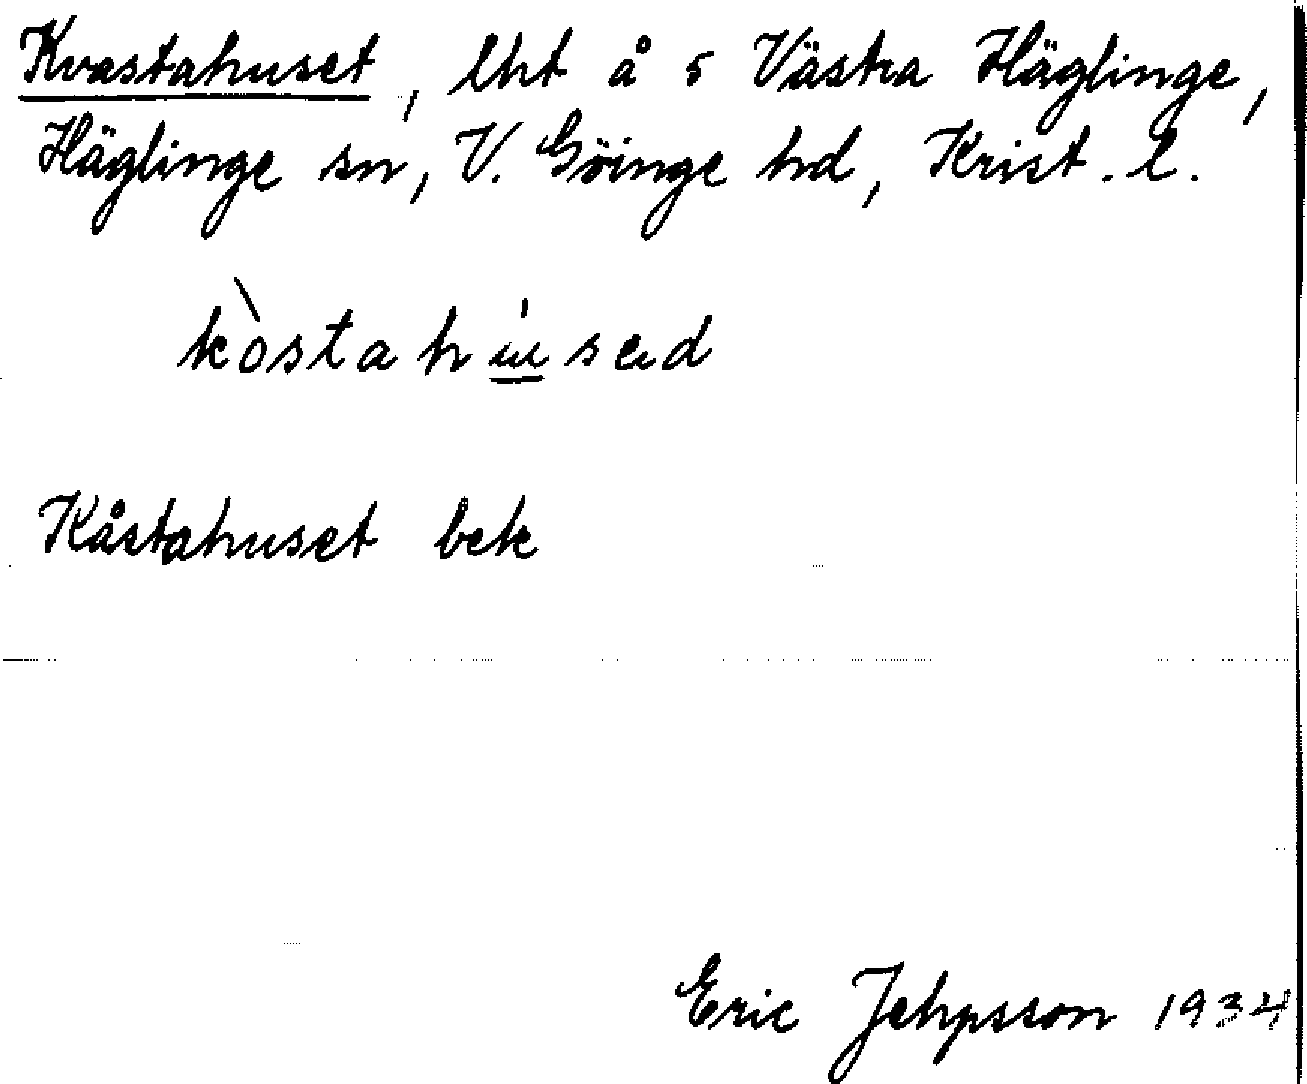 Kvastahuset, lht å 5 Västra Häglinge,
Häglinge sn, V. Göinge hd, Krist. l.
kòstahúsed
Kåstahuset bek
Eric Jehpsson 1934